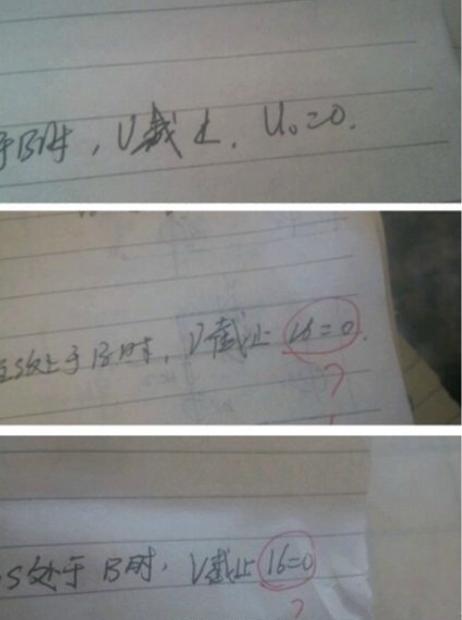 于B时，V截止．U₀=0．
在S处于B时，V截止 16=0．
?
S处于B时，V截止 16=0
?